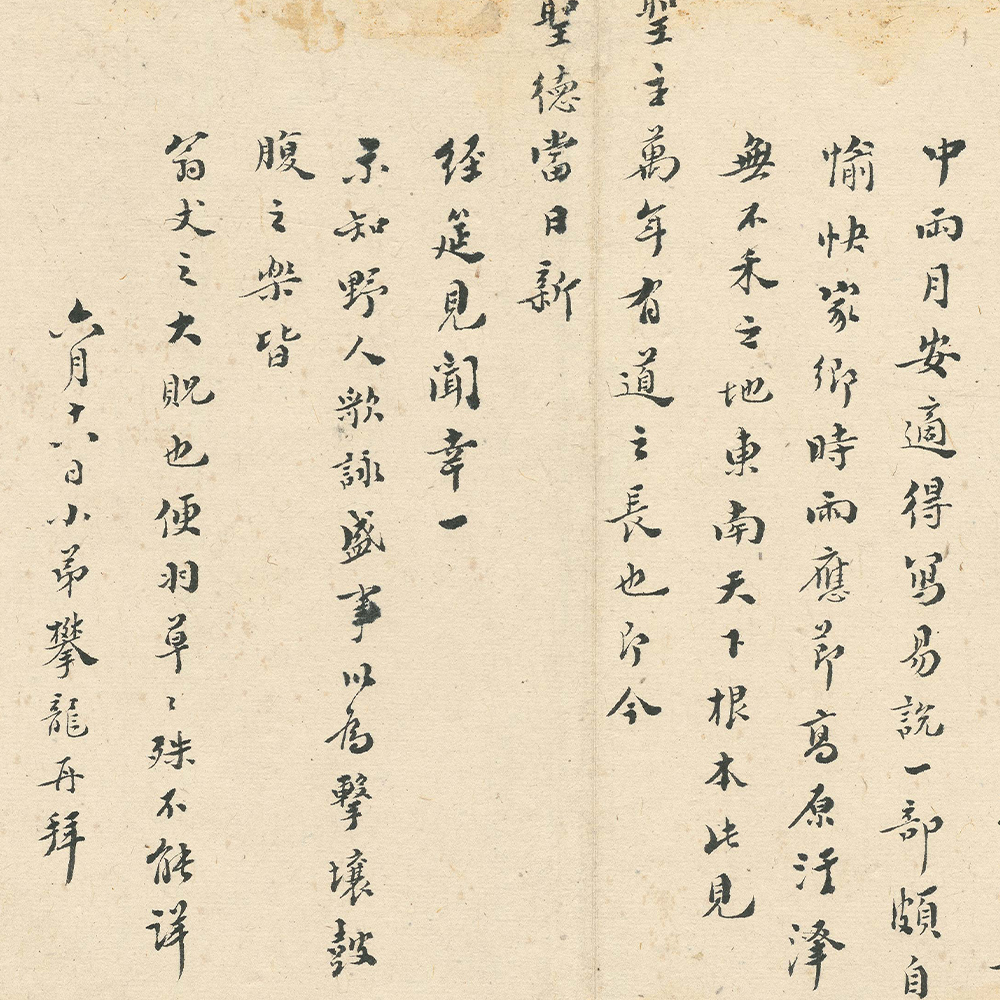 中兩月安適得寫易說一部頗自
愉快家鄉時雨應節高原汙澤
無不禾之地東南天下根本此見
聖主萬年有道之長也即今
聖德當日新
經筵見聞幸一
示知野人歌詠盛事以為擊壤鼓
腹之樂皆
翁丈之大貺也便羽草〻殊不能詳
六月十八日小弟攀龍再拜